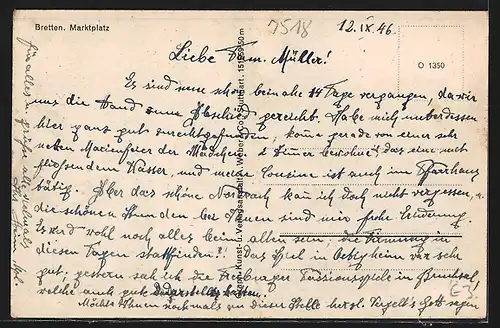 Bretten. Marktplatz
7518
12. IX 46.
O 1350
Liebe Fam. Müller!
Es sind nun schon beinahe 14 Tage vergangen, da wir
uns die Hand zum Abschied gereicht. Habe mich unterdessen
hier ganz gut zurechtgefunden, komme gerade von einer sehr
netten Marienfeier der Mädchen. 2 Zimmer bewohne! das eine mit
fließendem Wasser, und meine Cousine ist auch im Pfarrhaus
tätig. Aber das schöne Nordrach kann ich doch nicht vergessen,
die schönen Stunden bei Ihnen sind mir frohe Erinnerung
Es wird wohl noch alles beim alten sein, die in
diesen Tagen stattfinden! das Spiel in Oetigheim war sehr
gut. gestern sah ich die Passionsspiele in Bruchsal,
welche auch gut
Möchte Ihnen nochmals an dieser Stelle herzl. Vergelt's Gott sagen
für alles u. grüße alle vielmals
Kunst- u. Verlagsanstalt Weber & Co. Stuttgart, 151959 50 m
€3